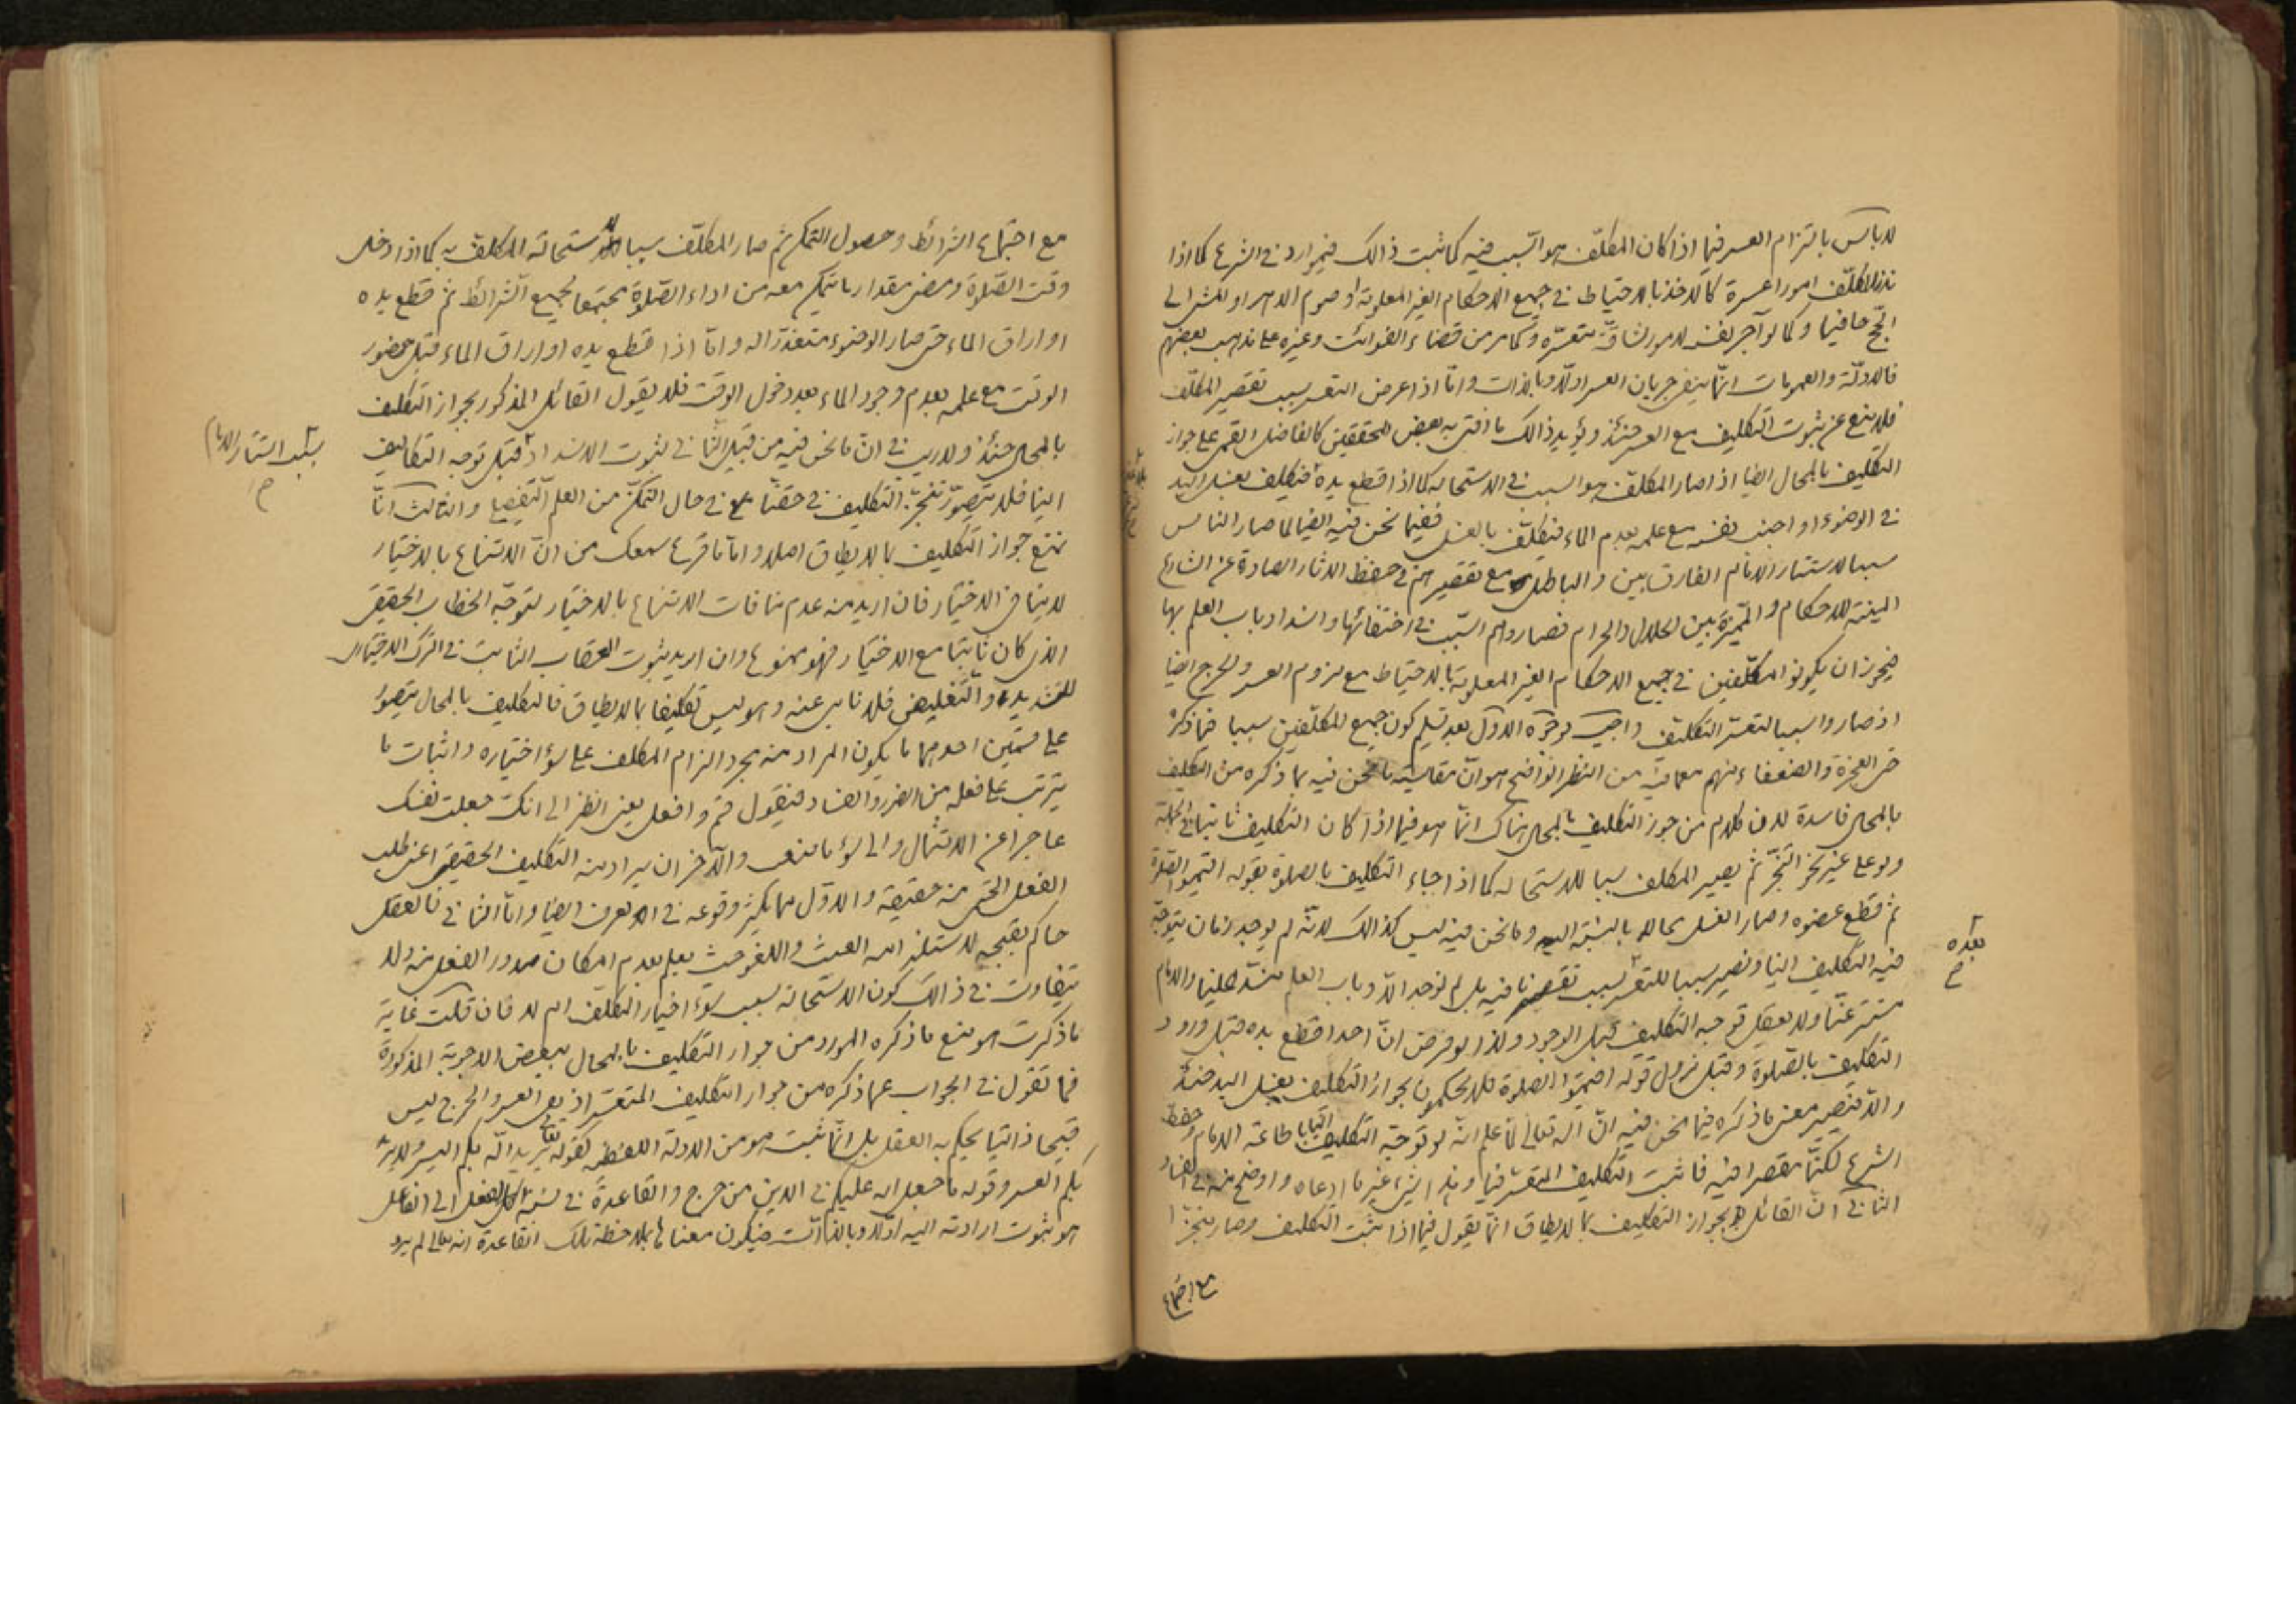 لا بأس بالتزام العسر فيما اذا كان المكلّف هو السّبب فيه كما ثبت ذالك فيموارد فى الشرع كما اذا
نذر المكلّف امورا عسرة كالاخذ بالاحتياط فى جميع الاحكام الغير المعلومة او صوم الدهر او المشى الى
الحجّ حافيا وكما لو آجر نفسه لامور شاقّة متعسّرة وكما مر من قضاء الفوائت وغيره على مذهب بعضهم
فالادلّة والعمومات انّما ينفى جريان العسر اولا وبالذات وامّا اذا عرض التعسر بسبب تقصير المكلّف
فلا يمنع عن ثبوت التكليف مع العسر حينئذ ويؤيد ذالك ما افتى به بعض المحققين كالفاضل القمى على جواز
التكليف بالمحال ايضا اذا صار المكلّف هو السبب فى الاستحالة كما اذا قطع يده فتكليف بغسل اليد
فى الوضوء او اجنب نفسه مع علمه بعدم الماء فيكلّف بالغسل ففيما نحن فيه ايضا لما صار الناس
سببا لاستتار الامام الفارق بين والباطل مع تقصيرهم فى حفظ الاثار الصادرة عن الشارع
المبينة للاحكام والمميّزة بين الحلال والحرام فصاروا هم السّبب فى اختفائها وانسداد باب العلم بها
فيجوز ان يكونوا المكلّفين فى جميع الاحكام الغير المعلومة بالاحتياط مع لزوم العسر والحرج ايضا
اذ صاروا سببا لتعسّر التكليف واجيب بوجوه الاول بعد تسليم كون جميع المكلّفين سببا فيما ذكره
حتى العجزة والضعفاء منهم معما فيه من النظر الواضح هو ان مقايسة ما نحن فيه بما ذكره من التكليف
بالمحال فاسدة لان كلام من جوز التكليف بالمحال هناك انّما هو فيما اذا كان التكليف ثابتا فى الجملة
ولو على غير نحو التنجّز ثم يصير المكلف سببا للاستحالة كما اذا جاء التكليف بالصلوة بقوله اقيموا الصّلوة
ثم قطع عضوه وصار الغسل محالا بالنسبة اليه وما نحن فيه ليس كذالك لانّه لم يوجد زمان يتوجّه
فيه التكليف الينا ونصير سببا للتعسّر بسبب تقصيرنا فيه بل لم نوجد الّا وباب العلم منسدّ علينا والامام
مستتر عنّا ولا يعقل توجه التكليف قبل الوجود ولذا لو فرض انّ احدا قطع يده قبل ورود
بعده
خ
التكليف بالصّلوة وقبل نزول قوله اقيموا الصلوة فلا يحكمون بجواز التكليف بغسل اليد حينئذ
والّا فيصير معنى ما ذكره فيما نحن فيه انّ اله تعالى لمّا علم انّه لو توجّه التكليف الينا باطاعة الامام وحفظ
الشرع لكنّا مقصرا فيه فاثبت التكليف المتعسّر فينا وهذا شىء غير ما ادعاه واوضح منه فى الفساد
الثانى انّ القائل بجواز التكليف بما لا يطاق انّما يقول فيما اذا ثبت التكليف وصار منجّزا
مع اجتماع
مع اجتماع الشرائط وحصول التمكن ثم صار المكلّف سببا لاستحالة المكلف به كما اذا دخل
وقت الصّلوة ومضى مقدار ما يتمكن معه من اداء الصّلوة مجتمعا لجميع الشرائط ثم قطع يده
او اراق الماء حتى صار الوضوء متعذّرا له وامّا اذا قطع يده او اراق الماء قبل حضور
الوقت مع علمه بعدم وجود الماء بعد دخول الوقت فلا يقول القائل المذكور بجواز التكليف
بالمحال حينئذ ولا ريب فى انّ ما نحن فيه من قبيل الثّانى لثبوت الانسداد قبل توجه التكاليف
بسبب استتار الامام
خ
الينا فلا يتصوّر تنجّز التكليف فى حقّنا فى حال التمكّن من العلم التّفصيلى والثالث انّا
نمنع جواز التكليف بما لا يطاق اصلا وامّا ما قرع سمعك من انّ الامتناع بالاختيار
لا ينافى الاختيار فان اريد منه عدم منافات الامتناع بالاختيار لتوجّه الخطاب الحقيقى
الذى كان ثابتا مع الاختيار فهو ممنوع وان اريد ثبوت العقاب الثابت فى الترك الاختيارى
للتشديد والتّغليظ فلا نأبى عنه وهو ليس تكليفا بما لا يطاق فالتكليف بالمحال يتصوّر
على قسمين احدهما ما يكون المراد منه مجرد الزام المكلف على سوء اختياره واثبات ما
يترتب على فعله من الضرر والفساد فيقول قم وافعل يعنى انظر الى انك جعلت نفسك
عاجرا عن الامتثال والى سوء ما صنعت والآخر ان يراد منه التكليف الحقيقى اعنى طلب
الفعل الحتمى منه حقيقة والاوّل مما يكثر وقوعه فى العرف ايضا وامّا الثانى فالعقل
حاكم بقبحه لاستلزامه العبث واللغو حيث يعلم بعدم امكان صدور الفعل منه ولا
يتفاوت فى ذالك كون الاستحالة بسبب سوء اختيار المكلف ام لا فان قلت غاية
ما ذكرت هو منع ما ذكره المورد من جواز التكليف بالمحال ببعض الاجوبة المذكورة
فما تقول فى الجواب عما ذكره من جواز التكليف المتعسّر اذ نفى العسر والحرج ليس
قبيحا ذاتيا يحكم به العقل بل انّما ثبت هو من الادلة اللفظية كقوله تعالى يريد الله بكم اليسر ولا يريد
بكم العسر وقوله ما جعل الله عليكم فى الدين من حرج والقاعدة فى نسبة كل فعل الى الفاعل
هو ثبوت ارادته اليه اوّلا وبالذّات فيكون معناها بملاحظة تلك القاعدة انه تعالى لم يرد